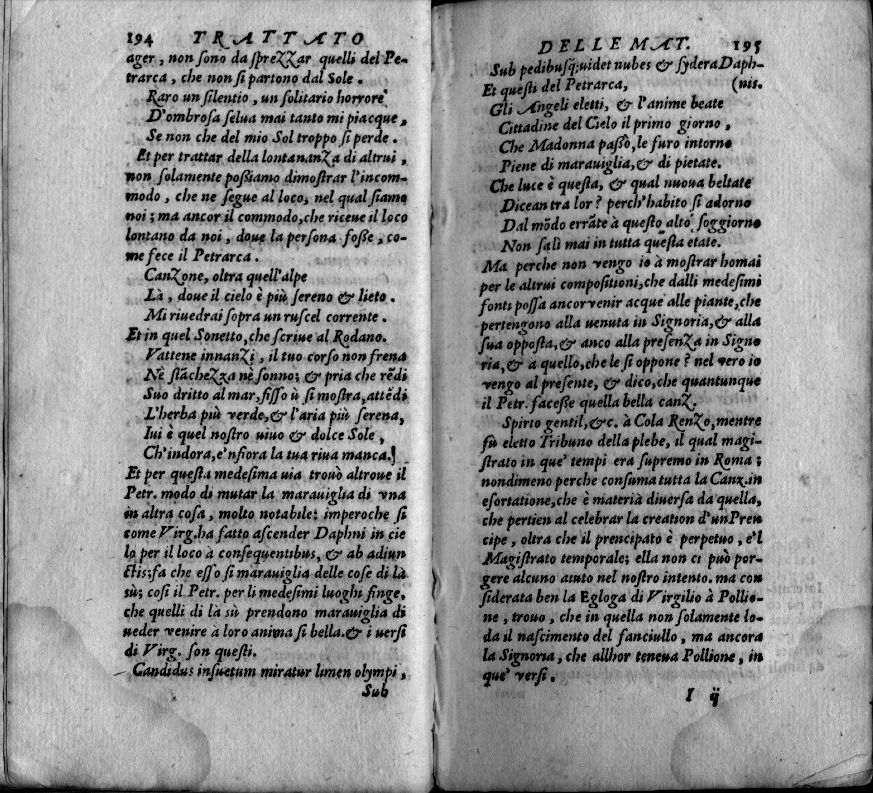 194 TRATTATO
ager, non ſono da ſpreZZar quelli del Pe-
trarca, che non ſi partono dal Sole.
Raro un ſilentio, un ſolitario horrore
D'ombroſa ſelua mai tanto mi piacque,
Se non che del mio Sol troppo ſi perde.
Et per trattar della lontananZa di altrui,
non ſolamente poßiamo dimoſtrar l'incom-
modo, che ne ſegue al loco, nel qual ſiamo
noi; ma ancor il commodo, che riceue il loco
lontano da noi, doue la perſona foße, co-
me fece il Petrarca.
CanZone, oltra quell'alpe
Là, doue il cielo è più ſereno & lieto.
Mi riuedrai ſopra un ruſcel corrente.
Et in quel Sonetto, che ſcriue al Rodano.
Vattene innanZi, il tuo corſo non frena
Nè ſtācheZza nè ſonno; & pria che rēdi
Suo dritto al mar, fiſſo ù ſi moſtra, attēdi
L'herba più verde, & l'aria più ſerena,
Iui è quel noſtro uiuo & dolce Sole,
Ch'indora, e'nfiora la tua riua manca.
Et per queſta medeſima uia trouò altroue il
Petr. modo di mutar la marauiglia di vna
in altra coſa, molto notabile: imperoche ſi
come Virg. ha fatto aſcender Daphni in cie
lo per il loco à conſequentibus, & ab adiun
ctis; fa che eſſo ſi marauiglia delle coſe di là
sù; coſi il Petr. per li medeſimi luoghi finge,
che quelli di là sù prendono marauiglia di
ueder venire à loro anima ſi bella. & i uerſi
di Virg. ſon queſti.
Candidus inſuetum miratur limen olympi,
Sub
DELLE MAT. 195
Sub pedibuſq; uidet nubes & ſydera Daph-
Et queſti del Petrarca, (nis.
Gli Angeli eletti, & l'anime beate
Cittadine del Cielo il primo giorno,
Che Madonna paßò, le furo intorno
Piene di marauiglia, & di pietate.
Che luce è queſta, & qual nuoua beltate
Dicean tra lor? perch'habito ſi adorno
Dal mōdo errāte à queſto alto ſoggiorno
Non ſalì mai in tutta queſta etate.
Ma perche non vengo io à moſtrar homai
per le altrui compoſitioni, che dalli medeſimi
fonti poſſa ancor venir acque alle piante, che
pertengono alla uenuta in Signoria, & alla
ſua oppoſta, & anco alla preſenZa in Signo
ria, & a quello, che le ſi oppone? nel vero io
vengo al preſente, & dico, che quantunque
il Petr. faceße quella bella canZ.
Spirto gentil, &c. à Cola RenZo, mentre
fù eletto Tribuno della plebe, il qual magi-
ſtrato in que' tempi era ſupremo in Roma;
nondimeno perche conſuma tutta la Canz. in
eſortatione, che è materia diuerſa da quella,
che pertien al celebrar la creation d'un Pren
cipe, oltra che il prencipato è perpetuo, e'l
Magiſtrato temporale; ella non ci può por-
gere alcuno aiuto nel noſtro intento. ma con
ſiderata ben la Egloga di Virgilio à Pollio-
ne, trouo, che in quella non ſolamente lo-
da il naſcimento del fanciullo, ma ancora
la Signoria, che allhor teneua Pollione, in
que' verſi.
I ij